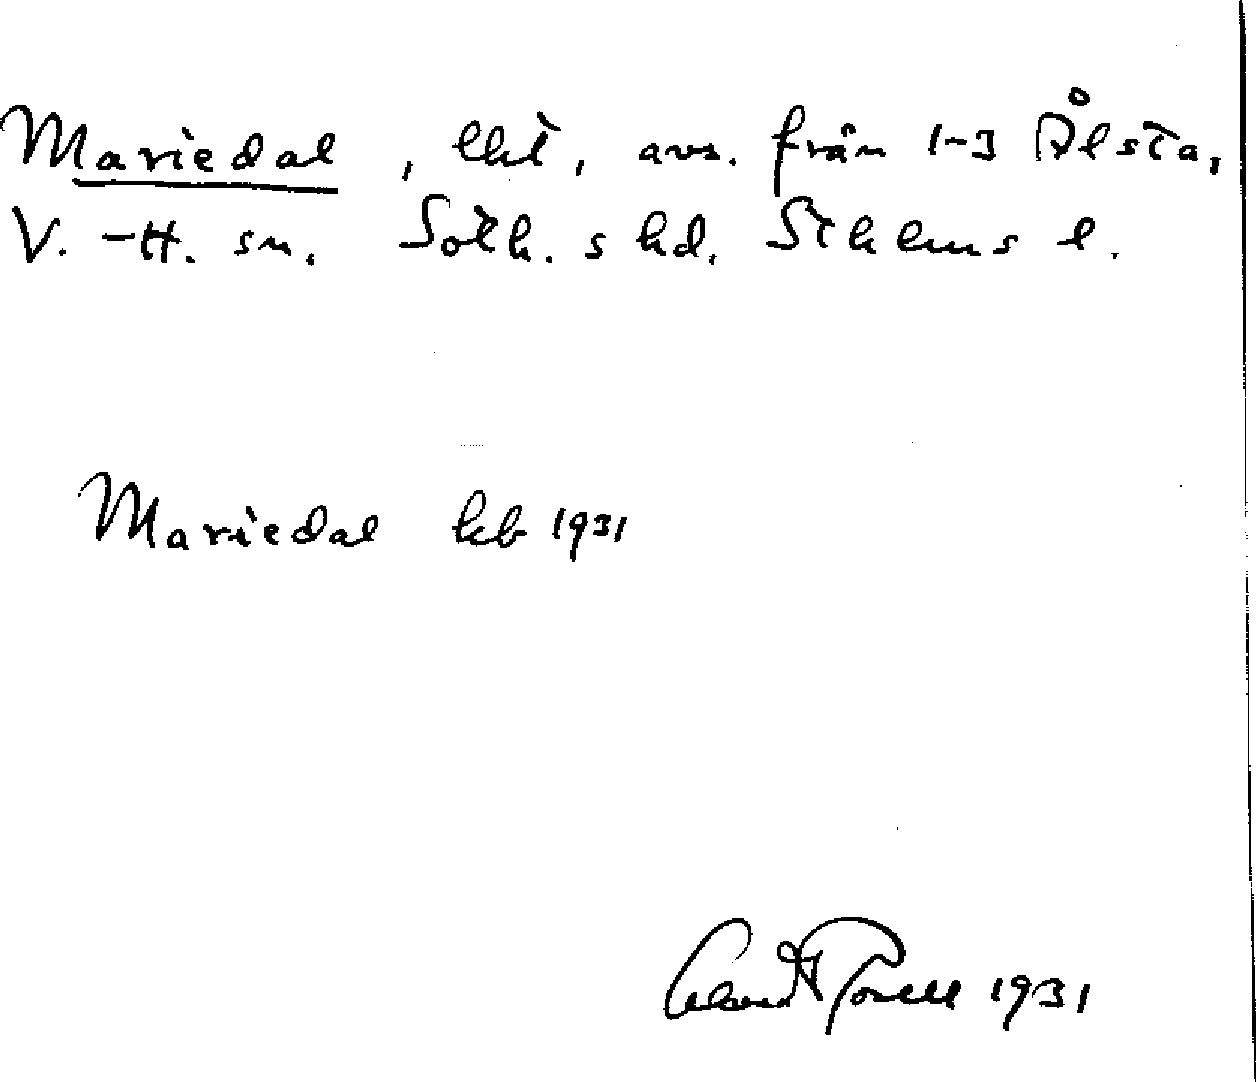 Mariedal, lht, avs. från 1-3 Ålsta,
V.-H. sn. Soth.s hd. Sthlms l.
Mariedal kb 1931
1931